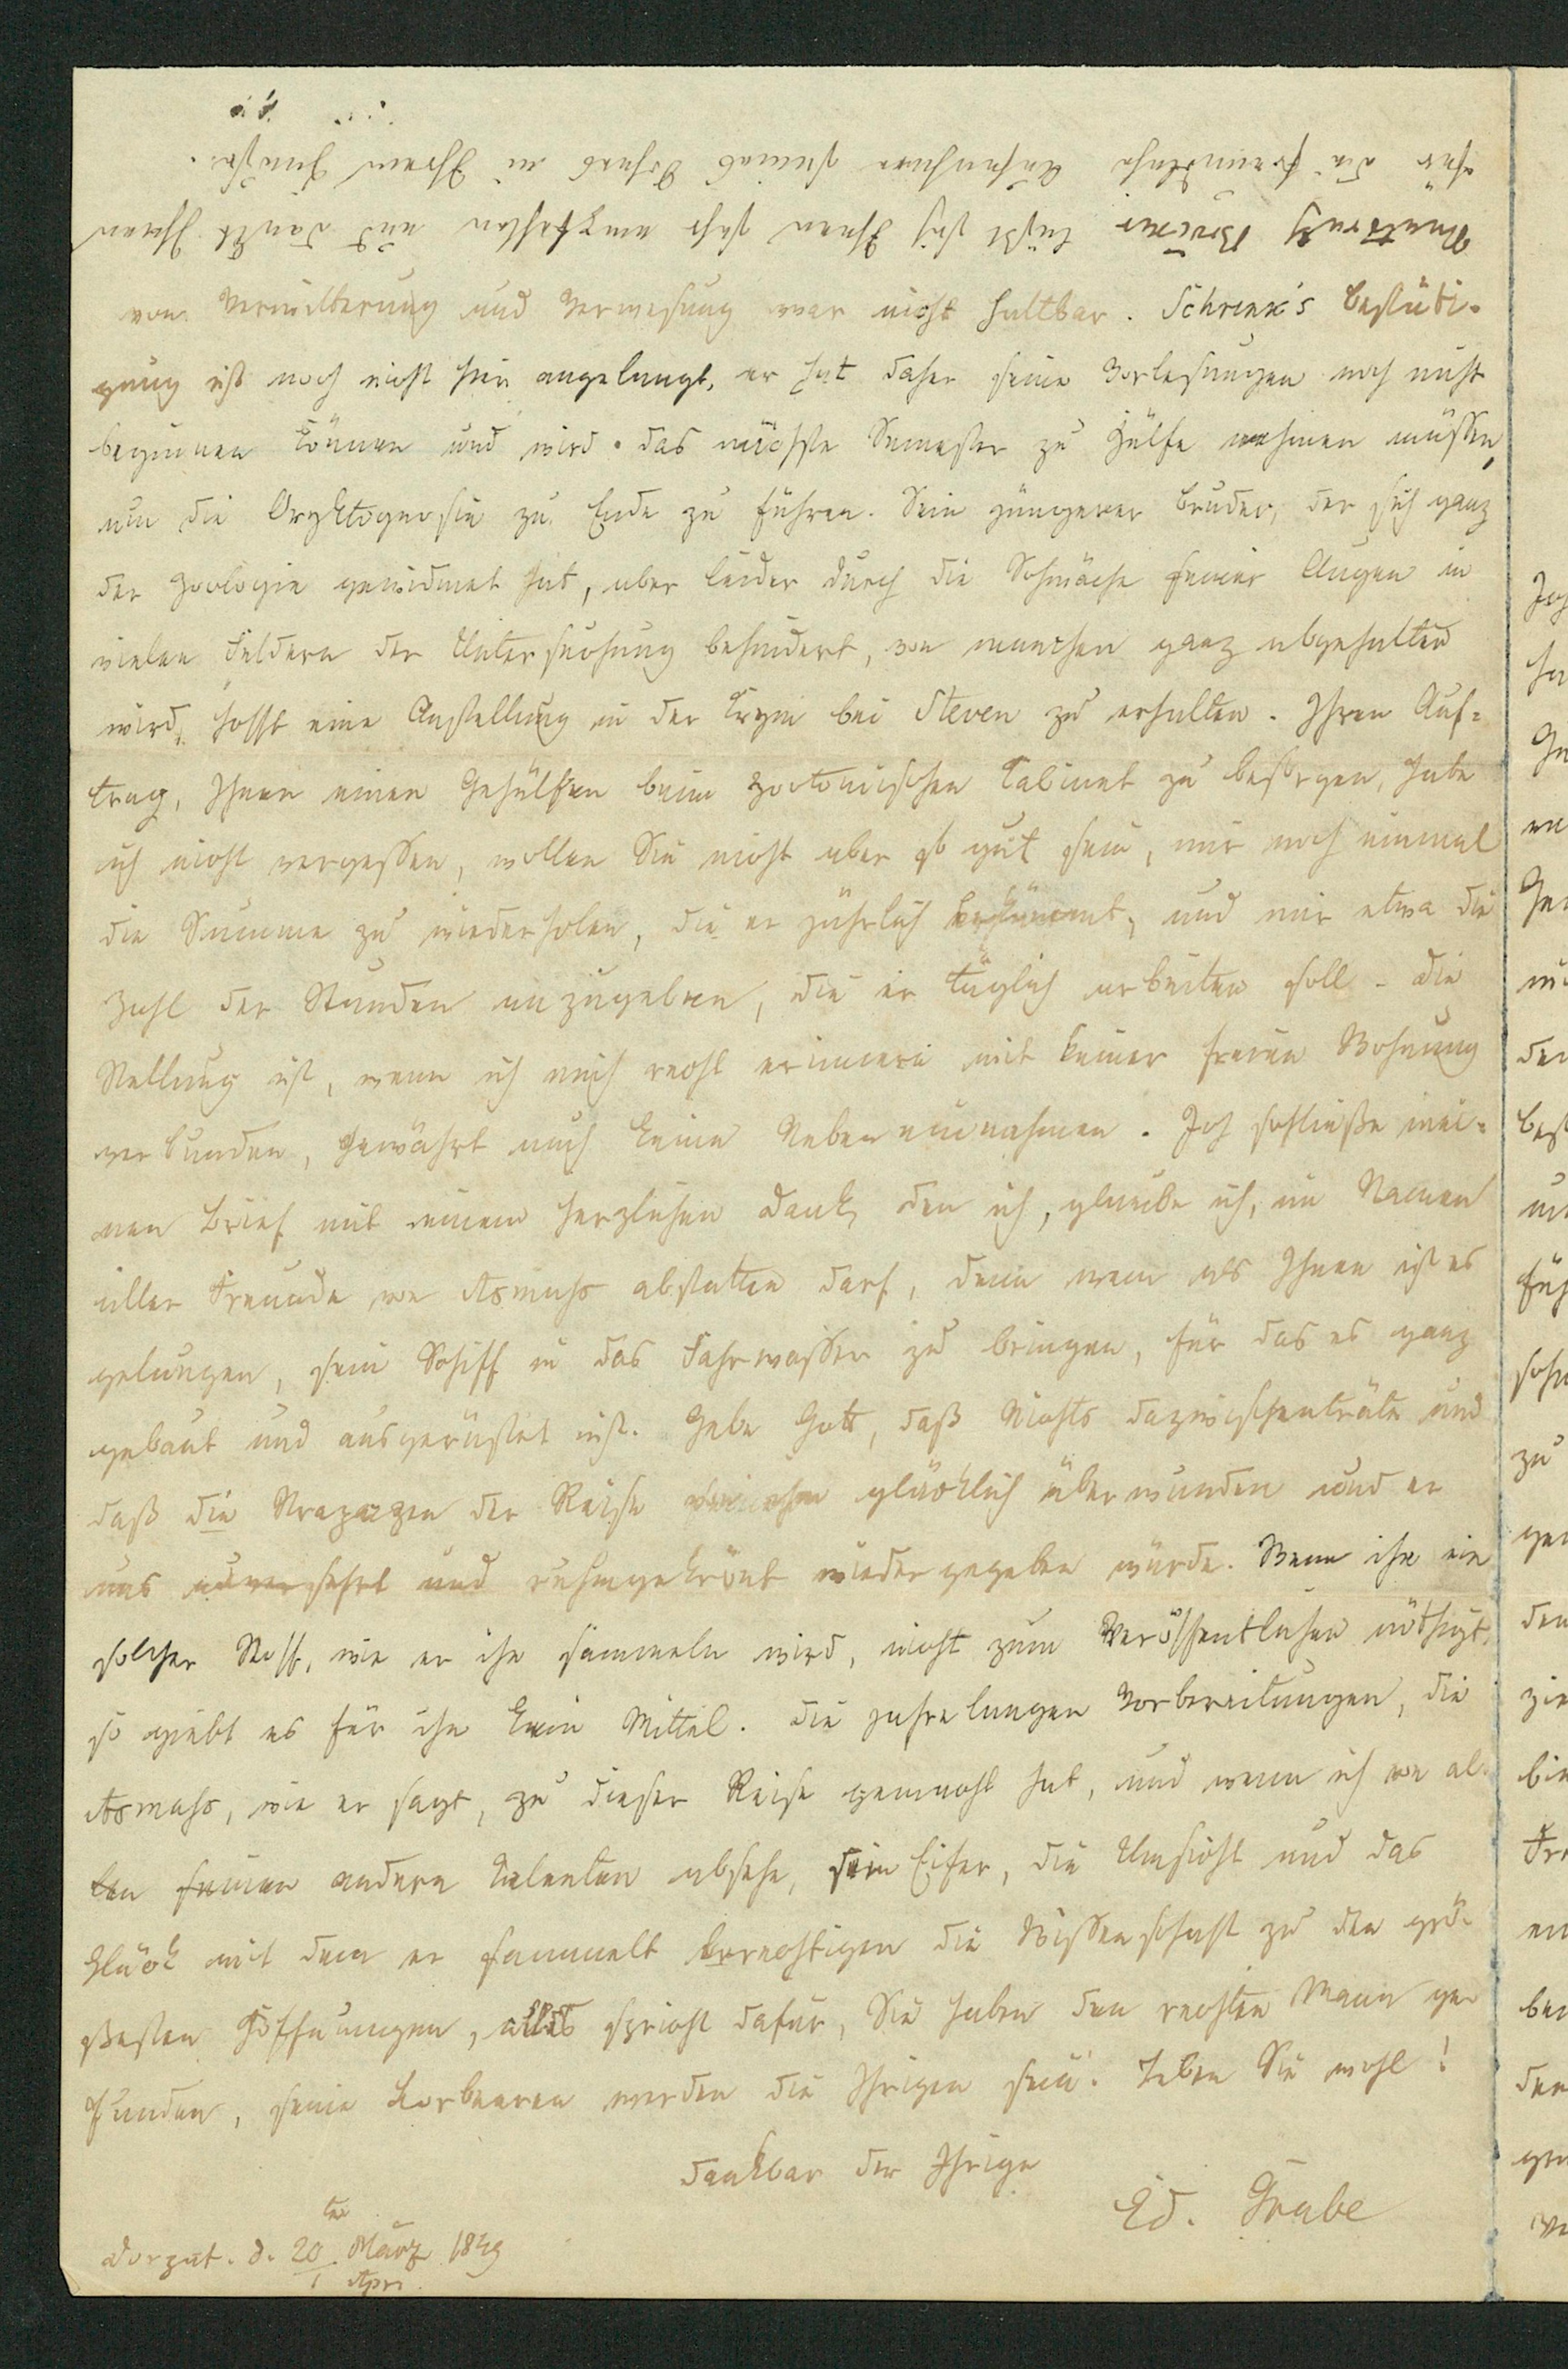 von Verwitterung und Verwesung war nicht haltbar. Schrenk's Bestäti-
gung ist noch nicht hier angelangt, er hat daher seine Vorlesungen noch nicht
beginnen können und wird das nächste Semester zu Hülfe nehmen müssen,
um die Oryktognosie zu Ende zu führen. Sein jüngerer Bruder, der sich ganz
der Zoologie gewidmet hat, aber leider durch die Schwäche seiner Augen in
vielen Feldern der Untersuchung behindert, von manchen ganz abgehalten
wird, hofft eine Anstellung in der Krym bei Steven zu erhalten. Ihren Auf-
trag, Ihnen einen Gehülfen beim zootomischen Cabinet zu besorgen, habe
ich nicht vergessen, wollen Sie nicht aber so gut sein, mir noch einmal
die Summe zu wiederholen, die er jährlich bekömmt, und mir etwa die
Zahl der Stunden anzugeben, die er täglich arbeiten soll. Die
Stellung ist, wenn ich mich recht erinnere mit keiner freien Wohnung
verbunden, gewährt auch keine Nebeneinnahmen. Ich schließe mei-
nen Brief mit einem herzlichen Dank, den ich, glaube ich, im Namen
aller Freunde von Asmuss abstatten darf, denn wem als Ihnen ist es
gelungen, sein Schiff in das Fahrwasser zu bringen, für das es ganz
gebaut und ausgerüstet ist. Gebe Gott, daß Nichts dazwischenträte und
daß die Strapazen der Reise glücklich überwunden und er
uns unversehrt und ruhmgekrönt wiedergegeben würde. Wenn ihn ein
solcher Stoff, wie er ihn sammeln wird, nicht zum Veröffentlichen nöthigt,
so giebt es für ihn kein Mittel. Die jahrelangen Vorbereitungen, die
Asmuss, wie er sagt, zu dieser Reise gemacht hat, und wenn ich von al-
len seinen andern Talenten absehe, sein Eifer, die Umsicht und das
Glück mit dem er sammelt berechtigen die Wissenschaft zu den grö-
ßesten Hoffnungen, alles spricht dafür, Sie haben den rechten Mann ge-
funden, seine Lorbeeren werden die Ihrigen sein. Leben Sie wohl!
Dankbar der Ihrige
Ed. Grube
Dorpat. d. 20ten März 1849
1 Apr.
Bruder läßt sich Ihnen sehr empfehlen und dankt Ihnen
für die freundliche Aufnahme seines Sohnes in Ihrem Hause.